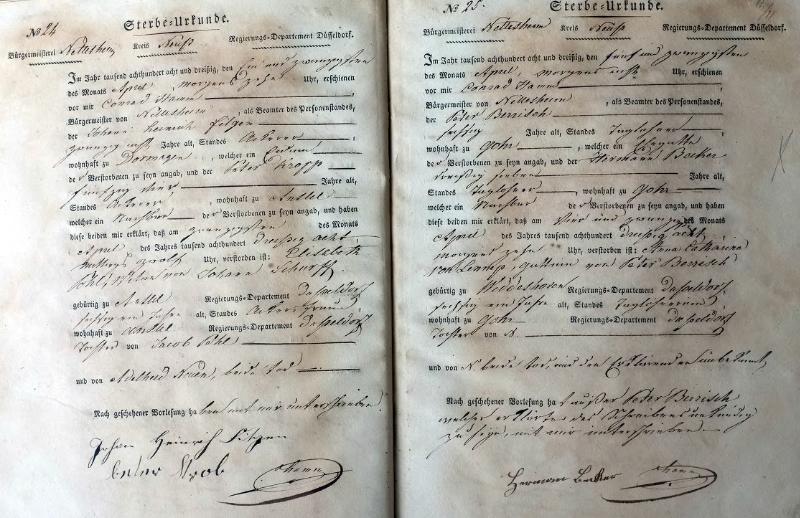 No 24
Sterbe-Urkunde.
Bürgermeisterei Nettesheim Kreis Neuß Regierungs-Departement Düsseldorf.
Im Jahr tausend achthundert acht und dreißig, den ein und zwanzigsten
des Monats April, morgens zehn Uhr, erschienen
vor mir Conrad Hamm
Bürgermeister von Nettesheim, als Beamter des Personenstandes,
der Johann Heinrich
zwanzig acht Jahre alt, Standes Ackerer
wohnhaft zu Dormagen, welcher ein
de Verstorbenen zu seyn angab, und der Peter
fünfzig vier Jahre alt,
Standes Ackerer, wohnhaft zu Anstel
welcher ein Nachbar de Verstorbenen zu seyn angab, und haben
diese beiden mir erklärt, daß am zwanzigsten des Monats
April des Jahres tausend achthundert dreißig acht
Uhr, verstorben ist: Elisabeth
von Johann
gebürtig zu Anstel Regierungs-Departement Düsseldorf
sechzig ein Jahre alt, Standes
wohnhaft zu Anstel Regierungs-Departement Düsseldorf
Tochter von Jacob
und von Adelheid, beide tod
Nach geschehener Vorlesung haben mit mir unterschrieben.
Johan Heinrich
Peter
Hamm
No 25.
Sterbe-Urkunde.
Bürgermeisterei Nettesheim Kreis Neuß Regierungs-Departement Düsseldorf.
Im Jahr tausend achthundert acht und dreißig, den fünf und zwanzigsten
des Monats April, morgens acht Uhr, erschienen
vor mir Conrad Hamm
Bürgermeister von Nettesheim, als Beamter des Personenstandes,
der Peter Berrisch
sechzig Jahre alt, Standes Taglöhner
wohnhaft zu Gohr, welcher ein
de Verstorbenen zu seyn angab, und der Hermann Becker
dreißig sieben Jahre alt,
Standes Taglöhner, wohnhaft zu Gohr
welcher ein Nachbar der Verstorbenen zu seyn angab, und haben
diese beiden mir erklärt, daß am vier und zwanzigsten des Monats
April des Jahres tausend achthundert dreißig acht
morgens zehn Uhr, verstorben ist: Anna Catharina
Gattin von Peter Berrisch
gebürtig zu Wiedeshoven Regierungs-Departement Düsseldorf
sechzig ein Jahre alt, Standes Taglöhnerin
wohnhaft zu Gohr Regierungs-Departement Düsseldorf
Tochter von N
und von N beide tod, und den Erklärenden unbekannt,
Nach geschehener Vorlesung ha außer Peter Berrisch
welcher erklärte des Schreibens unkundig
zu seyn, mit mir unterschrieben
Herman Becker
Hamm